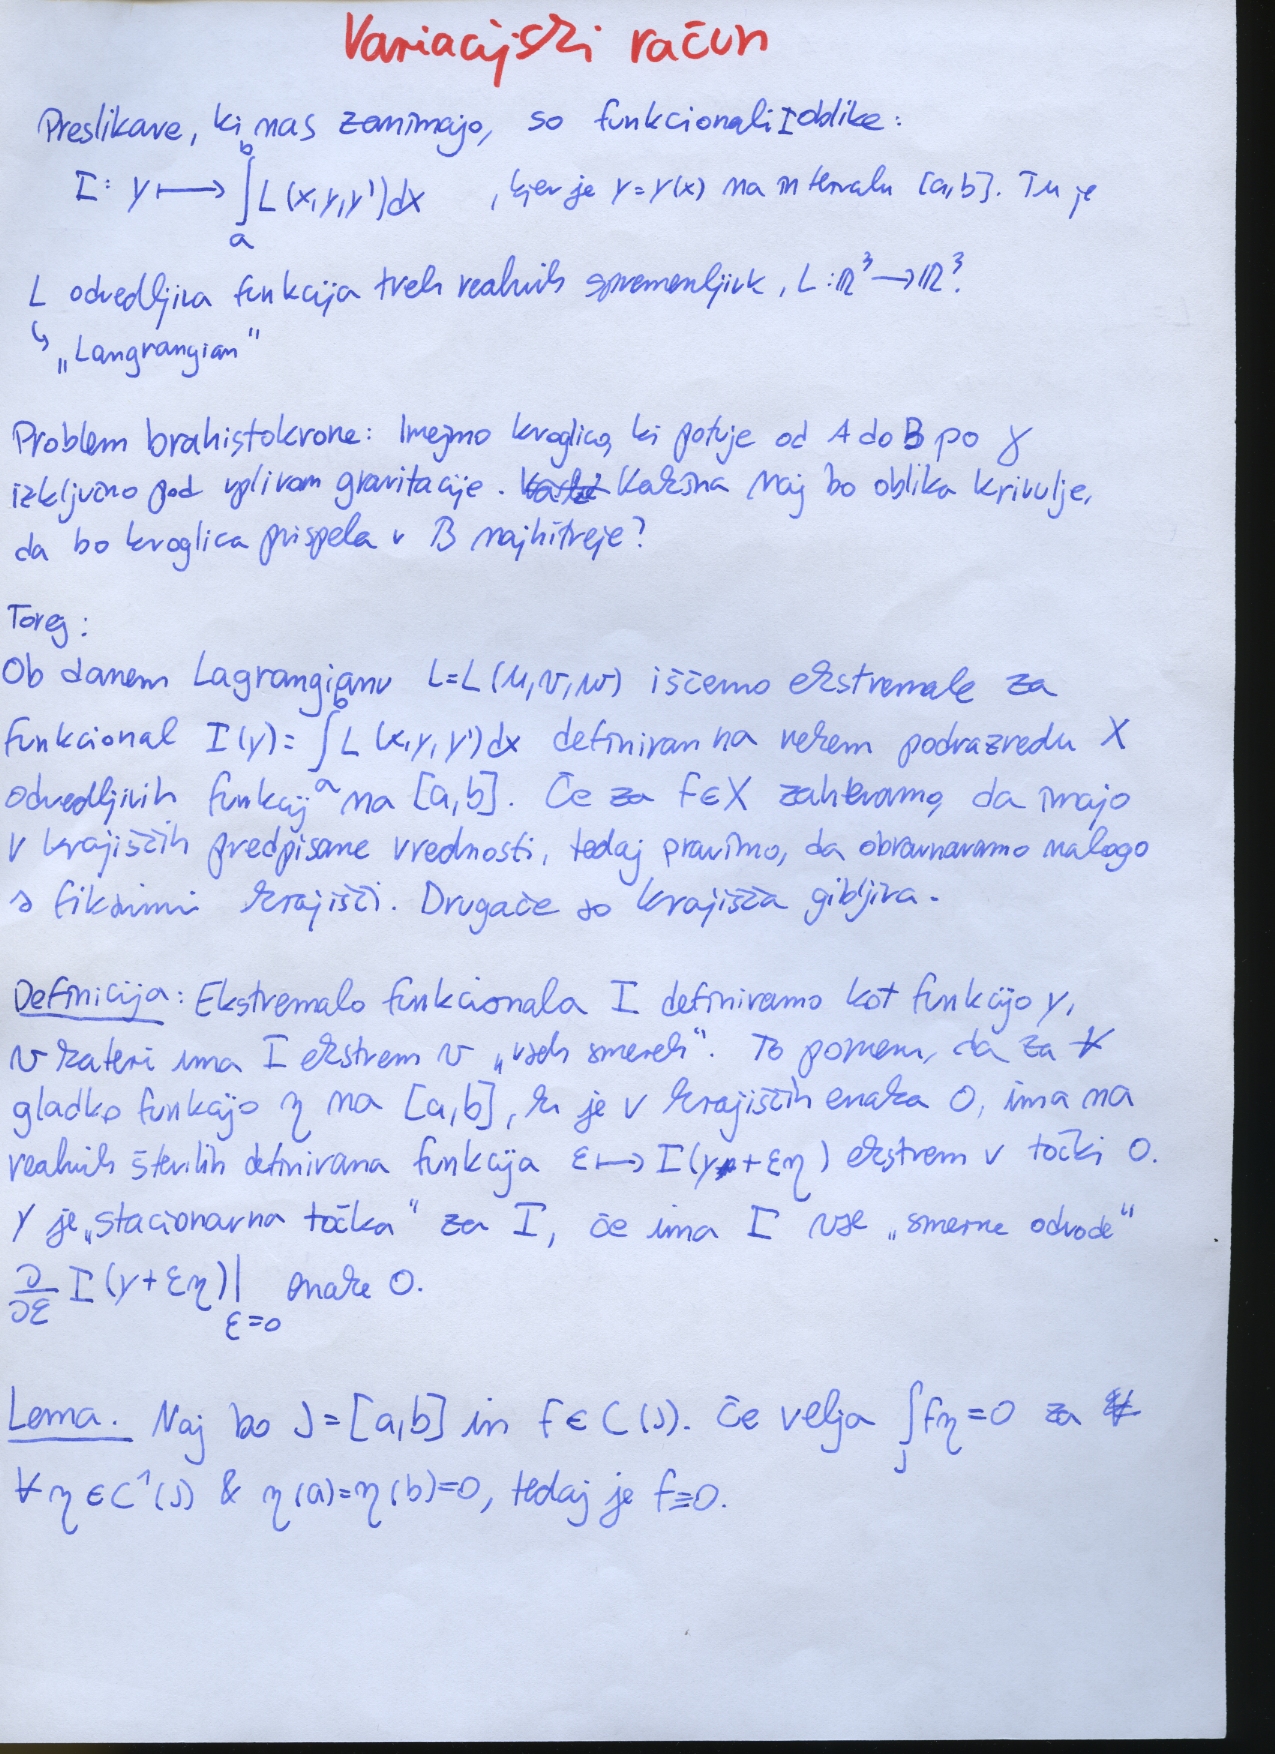 Variacijski račun
Preslikave, ki nas zanimajo, so funkcionali I oblike:
I: y ⟼ ∫_a^b L(x,y,y')dx , kjer je y=y(x) na intervalu [a,b]. Tu je
L odvedljiva funkcija treh realnih spremenljivk, L:ℝ³→ℝ³.
↳ „Langrangian"
Problem brahistokrone: Imejmo kroglico, ki potuje od A do B po γ
izključno pod vplivom gravitacije. Kakšna naj bo oblika krivulje,
da bo kroglica prispela v B najhitreje?
Torej:
Ob danem Lagrangianu L=L(u,v,w) iščemo ekstremale za
funkcional I(y)=∫_a^b L(x,y,y')dx definiran na nekem podrazredu X
odvedljivih funkcij na [a,b]. Če za f∈X zahtevamo, da imajo
v krajiščih predpisane vrednosti, tedaj pravimo, da obravnavamo nalogo
s fiksnimi krajišči. Drugače so krajišča gibljiva.
Definicija: Ekstremalo funkcionala I definiramo kot funkcijo y,
v kateri ima I ekstrem v „vseh smereh". To pomeni, da za ∀
gladko funkcijo η na [a,b], ki je v krajiščih enaka 0, ima na
realnih številih definirana funkcija ε⟼I(y+εη) ekstrem v točki 0.
y je „stacionarna točka" za I, če ima I vse „smerne odvode"
∂/∂ε I(y+εη)|_{ε=0} enake 0.
Lema. Naj bo J=[a,b] in f∈C(J). Če velja ∫_J fη=0 za
∀η∈C¹(J) & η(a)=η(b)=0, tedaj je f≡0.